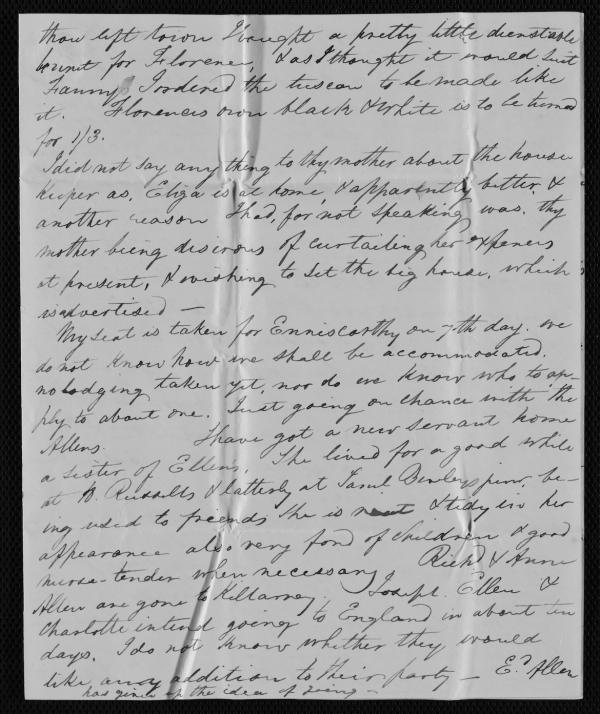 thou left town I bought a pretty little dunstable
bonnet for Florence, & as I thought it would suit
Fanny, I ordered the tuscan to be made like
it. Florences own black & white is to be turned
for 1/3.
I did not say any thing to thy mother about the house
keeper as, Eliza is at home, & apparently better, &
another reason I had, for not speaking was, thy
mother being desirous of curtailing her expences
at present, & wishing to set the big house, which
is advertised —
My seat is taken for Enniscorthy on 7th day. we
do not know how we shall be accommodated.
no lodging taken yet, nor do we know who to ap-
ply to about one. Just going on chance with the
Allens. I have got a new servant home
a sister of Ellens, She lived for a good while
at B. Russells & latterly at Saml Bewleys junr, be-
ing used to friends she is neat & tidy in her
appearance also very fond of children & good
nurse-tender when necessary. Richd & Anne
Allen are gone to Killarney. Joseph. Ellen &
Charlotte intend going to England in about ten
days. I do not know whether they would
like any addition to their party — Ed Allen
has given up the idea of going —